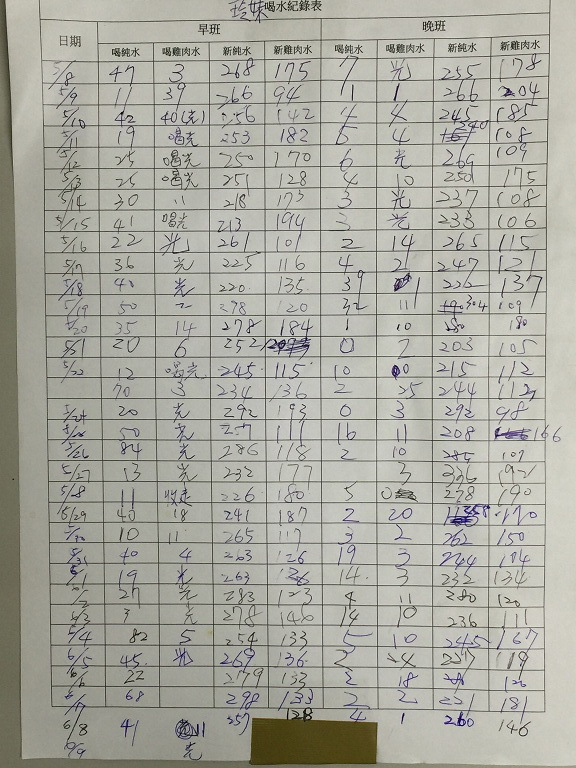 玲妹喝水紀錄表
日期 早班 晚班
喝純水 喝雞肉水 新純水 新雞肉水 喝純水 喝雞肉水 新純水 新雞肉水
5/8 47 3 268 175 7 光 255 178
5/9 11 39 266 94 1 1 266 204
5/10 42 40(光) 256 142 4 4 245 185
5/11 19 喝光 253 182 5 4 108
5/12 25 喝光 250 170 6 光 269 109
5/13 25 喝光 251 128 4 10 250 175
5/14 30 11 218 173 3 光 237 108
5/15 41 喝光 213 194 3 光 233 106
5/16 22 光 261 101 2 14 265 115
5/17 36 光 225 116 4 21 247 121
5/18 40 光 220 135 39 226 137
5/19 50 2 278 120 32 11 304 109
5/20 35 14 278 184 1 10 180 180
5/21 20 6 252 0 2 203 105
5/22 12 喝光 245 115 10 215 112
70 3 234 136 2 25 244 112
5/24 20 光 292 193 0 3 292 98
50 光 257 111 16 11 208 166
5/26 84 光 286 118 2 10 285 109
5/27 13 光 232 177 3 336 192
5/28 11 收走 226 180 5 0 278 190
5/29 40 18 241 187 2 20 170
5/30 10 11 265 117 3 2 262 150
5/31 40 4 263 126 19 3 244 174
6/1 19 光 263 126 14 3 232 134
6/2 27 光 283 123 4 11 280 120
光 278 140 14 10 236 111
6/4 82 5 254 133 5 10 245 167
6/5 45 光 269 136 4 227 119
6/6 22 279 133 18 120
6/7 68 298 133 2 2 221 181
6/8 41 光 257 128 4 1 260 146
6/9 光